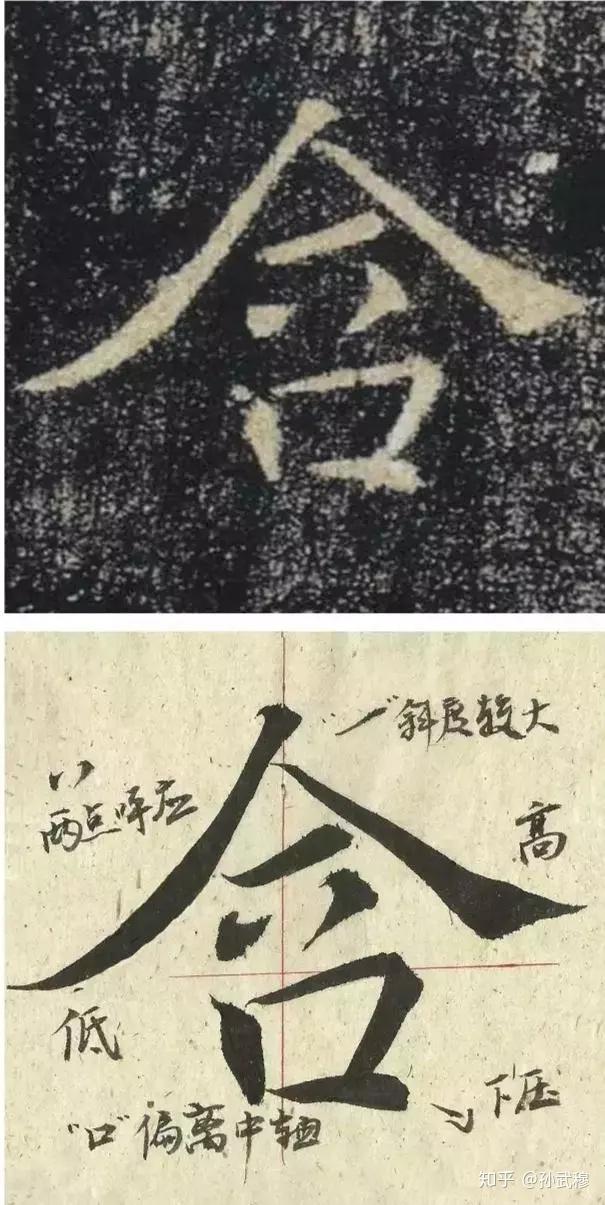 含
一斜度较大
两点呼应
高
含
低
下压
"口"偏离中轴
知乎 @孙武穆